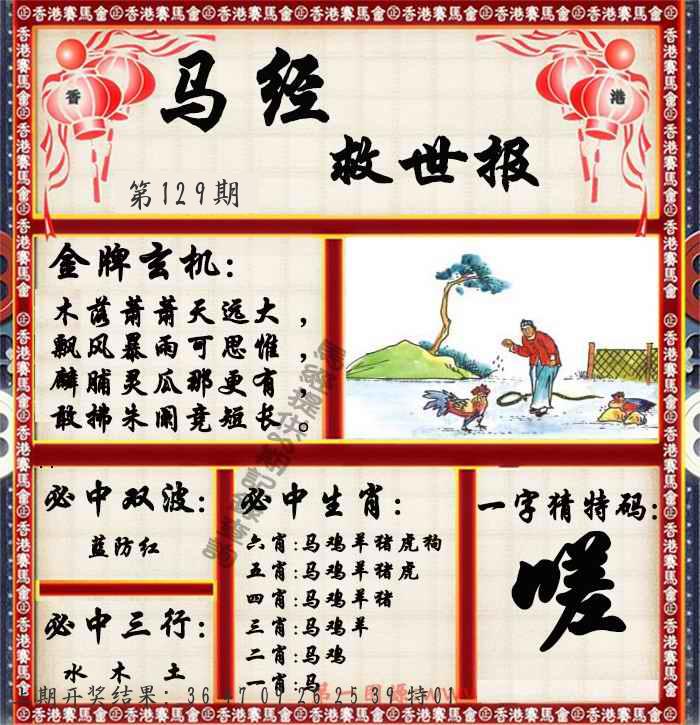 香港賽馬會 香港賽馬會 香港賽馬會 香港賽馬會 香港賽馬會 香港賽馬會
香 港
马经
救世报
第129期
金牌玄机:
木落萧萧天远大，
飘风暴雨可思惟，
麟脯灵瓜那更有，
敢拂朱阑竞短长。
必中双波:
蓝防红
必中三行:
水 木 土
必中生肖:
六肖:马鸡羊猪虎狗
五肖:马鸡羊猪虎
四肖:马鸡羊猪
三肖:马鸡羊
二肖:马鸡
一肖:马
一字猜特码:
嗟
期开奖结果: 36 47 07 26 25 39 特01